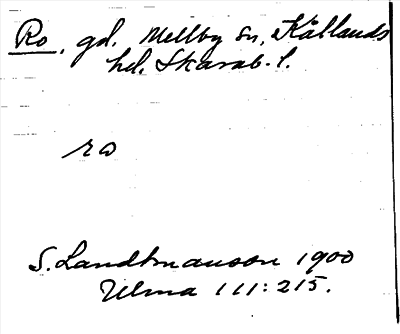 Ro, gd. Mellby sn, Kållands
hd. Skarab. l.
ro
S. Landtmanson 1900
Ulma 111:215.